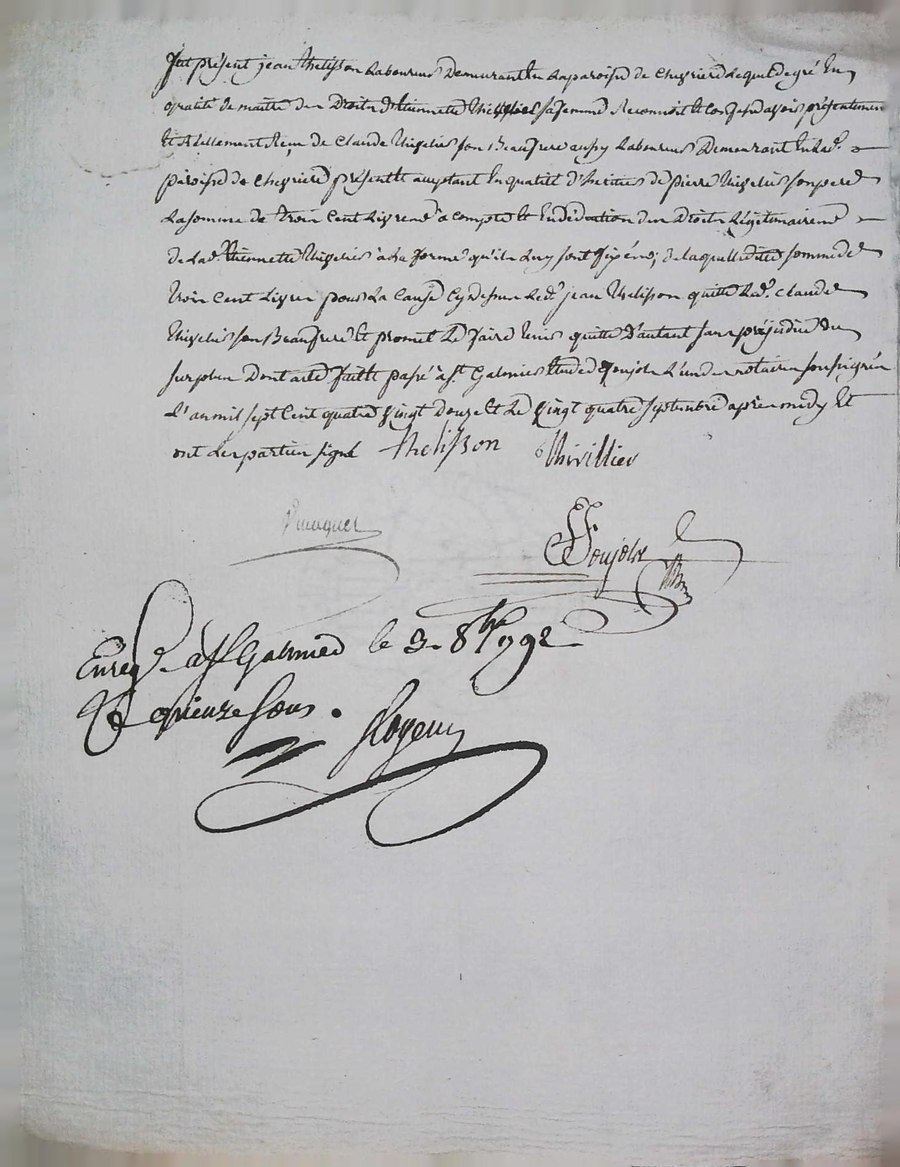 fut présent jean thelisson Laboureur Demeurant en La paroisse de Chevriere Lequel de gré En
qualité de maitre des Droits d'Etiennette sa femme Reconnoit et Confesse avoir présentement
et Réellement Reçu de Claude son Beaufrere aussy Laboureur Demeurant En Lad.
paroisse de Chevriere présent et acceptant En qualité d'heritier de pierre son pere
La somme de trois Cent Livres à compte et En déduction des Droits Légitimaires
de Lad. Etiennette à La forme qu'ils Luy sont fixés; de laquelle ditte somme de
trois Cent Livres pour La Cause Cy dessus Led. jean thelisson quitte Led. Claude
son Beaufrere et promet Le faire tenir quitte D'autant sans préjudice du
surplus Dont acte fait et passé à St. Galmier Etude de Poujols L'un des notaires soussignés
L'an mil sept Cent quatre vingt Douze et Le vingt quatre septembre apres midy Et
ont Les parties signé thelisson thivillier
Poujols
Enreg. à St Galmier le 3. 8bre 1792
quinze sous.